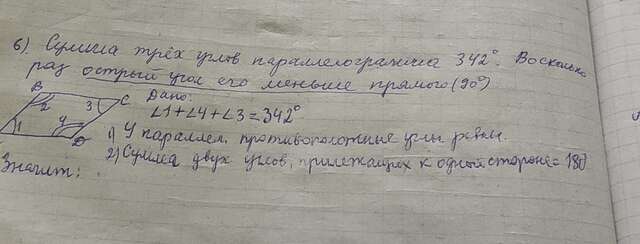 6) Сумма трёх углов параллелограмма 342°. Восколько
раз острый угол его меньше прямого (90°)
B 2 3 C Дано:
∠1+∠4+∠3=342°
1 4 D 1) У параллел. противоположные углы равны.
2) Сумма двух углов, прилежащих к одной стороне=180
Значит: